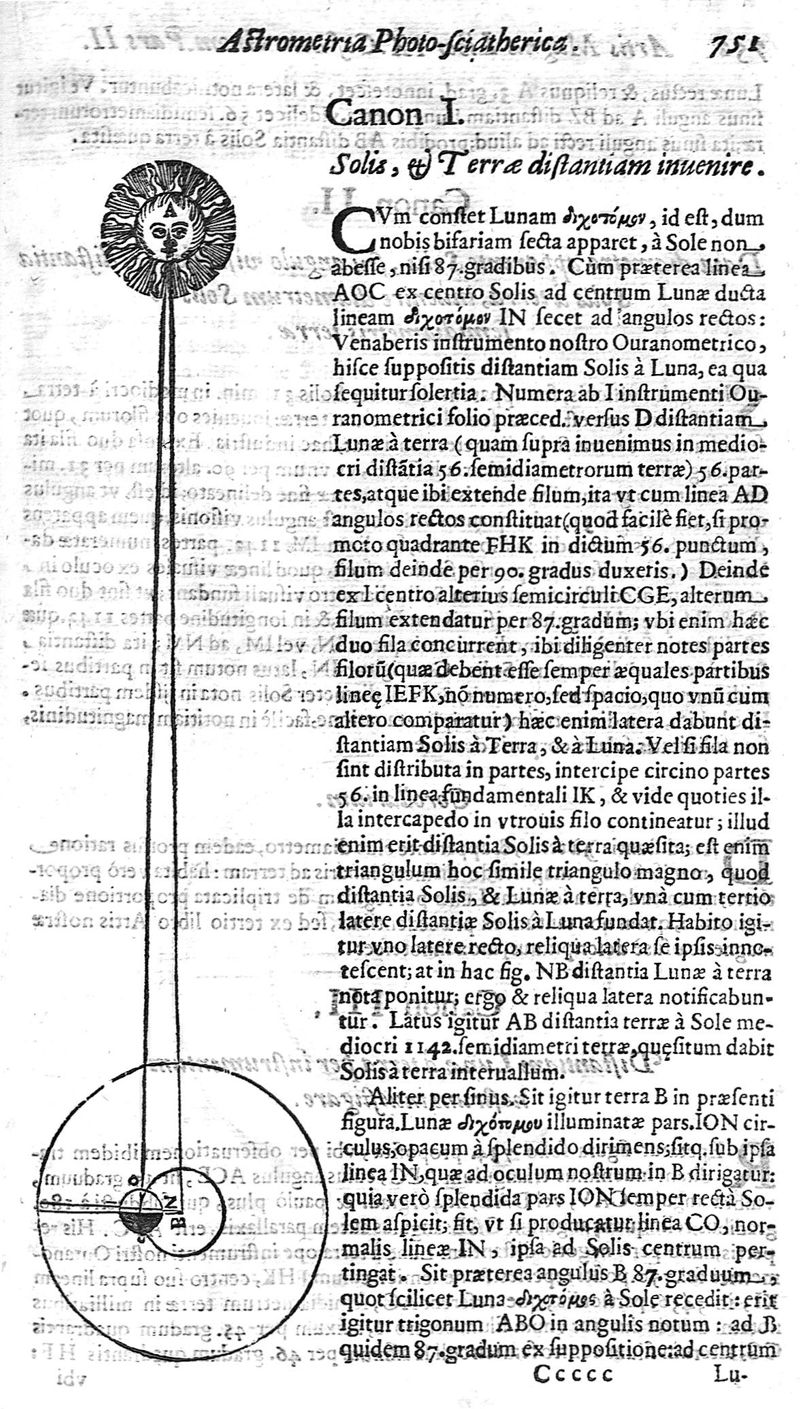 Astrometria Photo-sciatherica. 751
Canon I.
Solis, & Terræ distantiam inuenire.
CVm constet Lunam διχοτόμον, id est, dum
nobis bifariam secta apparet, à Sole non
abesse, nisi 87. gradibus. Cùm præterea linea
AOC ex centro Solis ad centrum Lunæ ducta
lineam διχοτόμον IN secet ad angulos rectos:
Venaberis instrumento nostro Ouranometrico,
hisce suppositis distantiam Solis à Luna, ea qua
sequitur solertia. Numera ab I instrumenti Ou-
ranometrici folio præced. versus D distantiam
Lunæ à terra (quam supra inuenimus in medio-
cri distãtia 56. semidiametrorum terræ) 56. par-
tes, atque ibi extende filum, ita vt cum linea AD
angulos rectos constituat (quod facilè fiet, si pro-
moto quadrante FHK in dictum 56. punctum,
filum deinde per 90. gradus duxeris.) Deinde
ex I centro alterius semicirculi CGE, alterum
filum extendatur per 87. gradum; vbi enim hæc
duo fila concurrent, ibi diligenter notes partes
filorũ (quæ debent esse semper æquales partibus
lineę IEFK, nõ numero, sed spacio, quo vnũ cum
altero comparatur) hæc enim latera dabunt di-
stantiam Solis à Terra, & à Luna. Vel si fila non
sint distributa in partes, intercipe circino partes
56. in linea fundamentali IK, & vide quoties il-
la intercapedo in vtrouis filo contineatur; illud
enim erit distantia Solis à terra quæsita; est enim
triangulum hoc simile triangulo magno, quod
distantia Solis, & Lunæ à terra, vnà cum tertio
latere distantiæ Solis à Luna fundat. Habito igi-
tur vno latere recto, reliqua latera se ipsis inno-
tescent; at in hac fig. NB distantia Lunæ à terra
nota ponitur; ergo & reliqua latera notificabun-
tur. Latus igitur AB distantia terræ à Sole me-
diocri 1142. semidiametri terræ, quęsitum dabit
Solis à terra interuallum.
Aliter per sinus. Sit igitur terra B in præsenti
figura. Lunæ διχοτόμου illuminatæ pars. ION cir-
culus, opacum à splendido dirimens; sitq. sub ipsa
linea IN, quæ ad oculum nostrum in B dirigatur:
quia verò splendida pars ION semper rectà So-
lem aspicit; fit, vt si producatur linea CO, nor-
malis lineæ IN, ipsa ad Solis centrum per-
tingat. Sit præterea angulus B 87. graduum,
quot scilicet Luna διχοτόμος à Sole recedit: erit
igitur trigonum ABO in angulis notum: ad B
quidem 87. gradum ex suppositione: ad centrum
Ccccc Lu-
A
O
B N
C